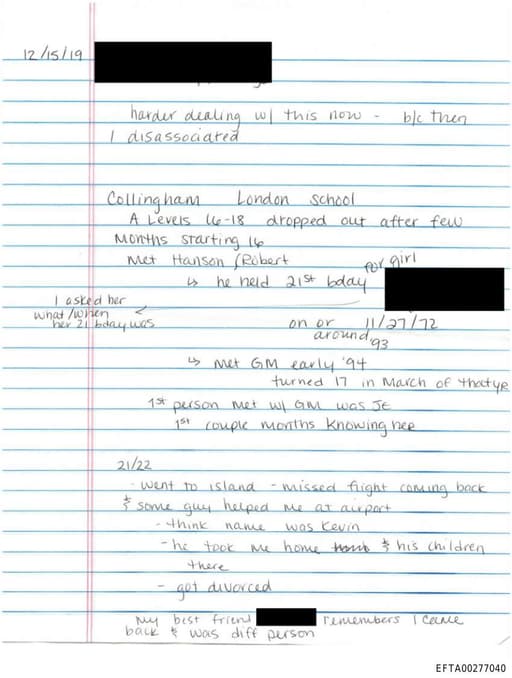 12/15/19
harder dealing w/ this now - b/c then
I disassociated
Collingham London School
A Levels 16-18 dropped out after few
Months starting 16
Met Hanson /Robert
for girl
↳ he held 21st bday
I asked her
what/when
her 21 bday was
on or 11/27/72
around '93
↳ Met GM early '94
turned 17 in March of that yr
1st person met w/ GM was JE
1st couple months knowing her
21/22
- went to island - missed flight coming back
& some guy helped me at airport
- think name was Kevin
- he took me home & his children
there
- got divorced
My best friend remembers I came
back & was diff person
EFTA00277040